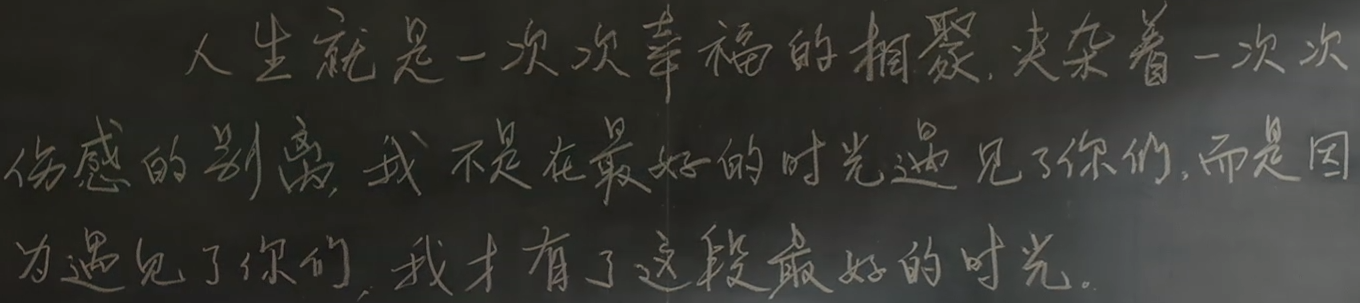 人生就是一次次幸福的相聚,夹杂着一次次
伤感的别离,我不是在最好的时光遇见了你们,而是因
为遇见了你们,我才有了这段最好的时光。